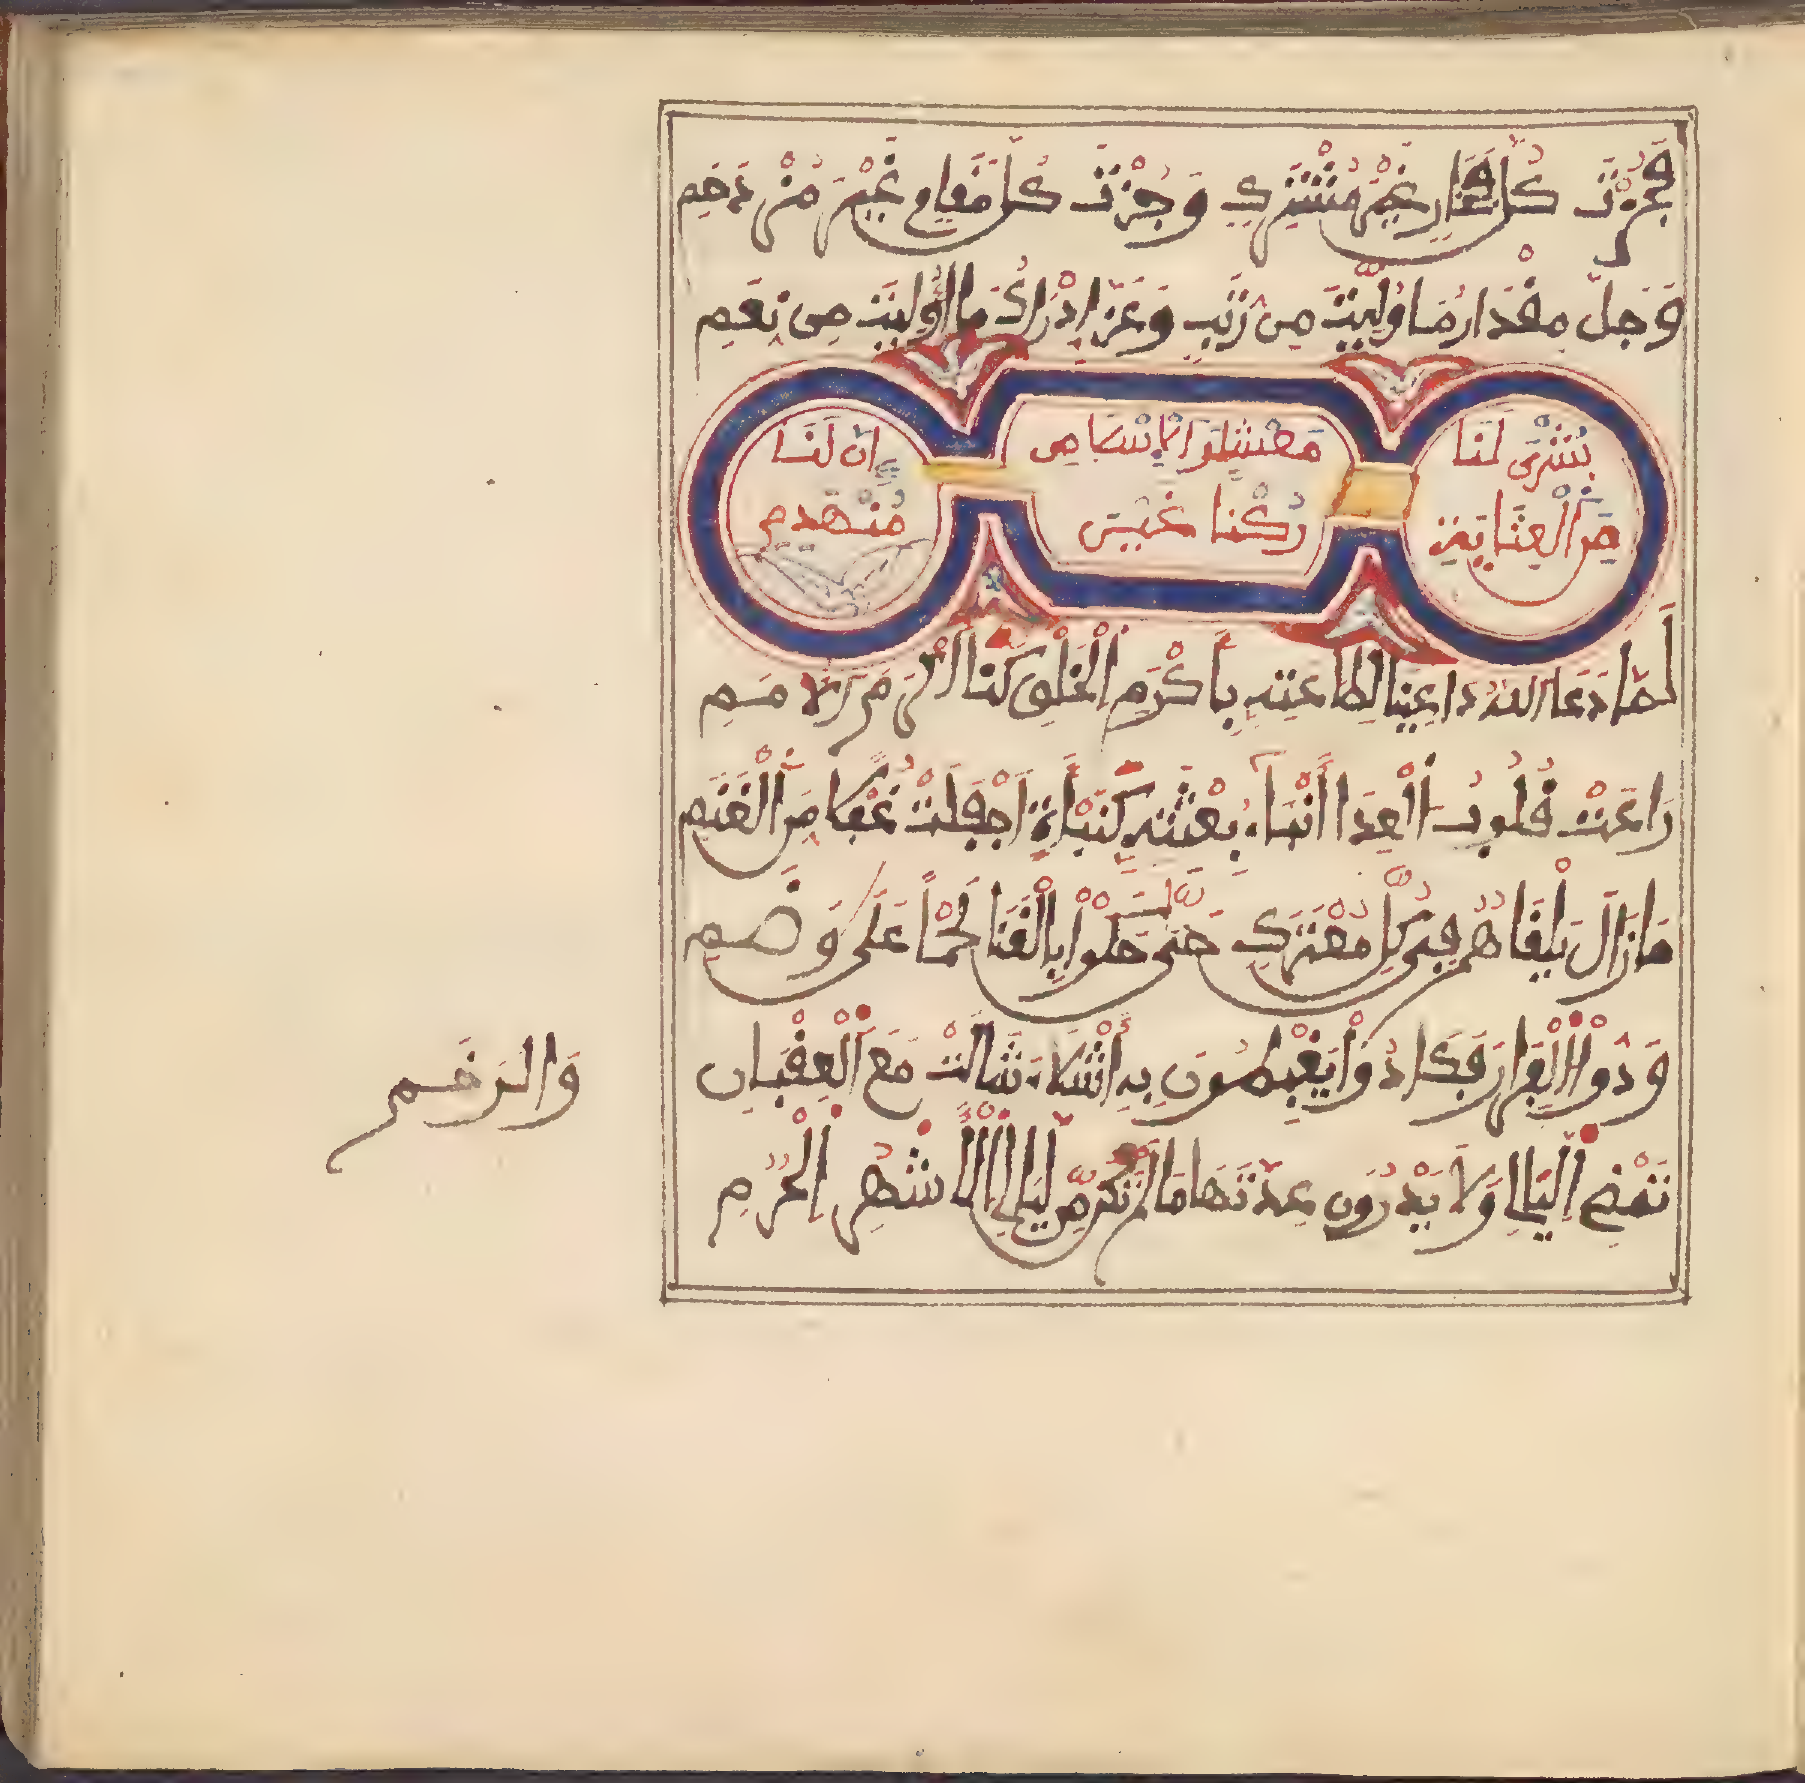 فَحُزْتَ كُلَّ فَخَارٍ غَيْرَ مُشْتَرَكٍ وَجُزْتَ كُلَّ مَقَامٍ غَيْرَ مُزْدَحَمِ
وَجَلَّ مِقْدَارُ مَا وُلِّيتَ مِن رُتَبٍ وَعَزَّ إِدْرَاكُ مَا أُولِيتَ مِن نِعَمِ
بُشْرَى لَنَا مَعْشَرَ الْإِسْلَامِ إِنَّ لَنَا
مِنَ الْعِنَايَةِ رُكْنًا غَيْرَ مُنْهَدِمِ
لَمَّا دَعَا اللهُ دَاعِينَا لِطَاعَتِهِ بِأَكْرَمِ الْخَلْقِ كُنَّا أَكْرَمَ الْأُمَمِ
رَاعَتْ قُلُوبَ الْعِدَا أَنْبَاءُ بِعْثَتِهِ كَنَبْأَةٍ أَجْفَلَتْ غُفْلًا مِنَ الْغَنَمِ
مَا زَالَ يَلْقَاهُمُ فِي كُلِّ مُعْتَرَكٍ حَتَّى حَكَوْا بِالْقَنَا لَحْمًا عَلَى وَضَمِ
وَدُّوا الْفِرَارَ فَكَادُوا يَغْبِطُونَ بِهِ أَشْلَاءَ شَالَتْ مَعَ الْعِقْبَانِ
وَالرَّخَمِ
تَمْضِي اللَّيَالِي وَلَا يَدْرُونَ عِدَّتَهَا مَا لَمْ تَكُن مِّن لَيَالِي الْأَشْهُرِ الْحُرُمِ